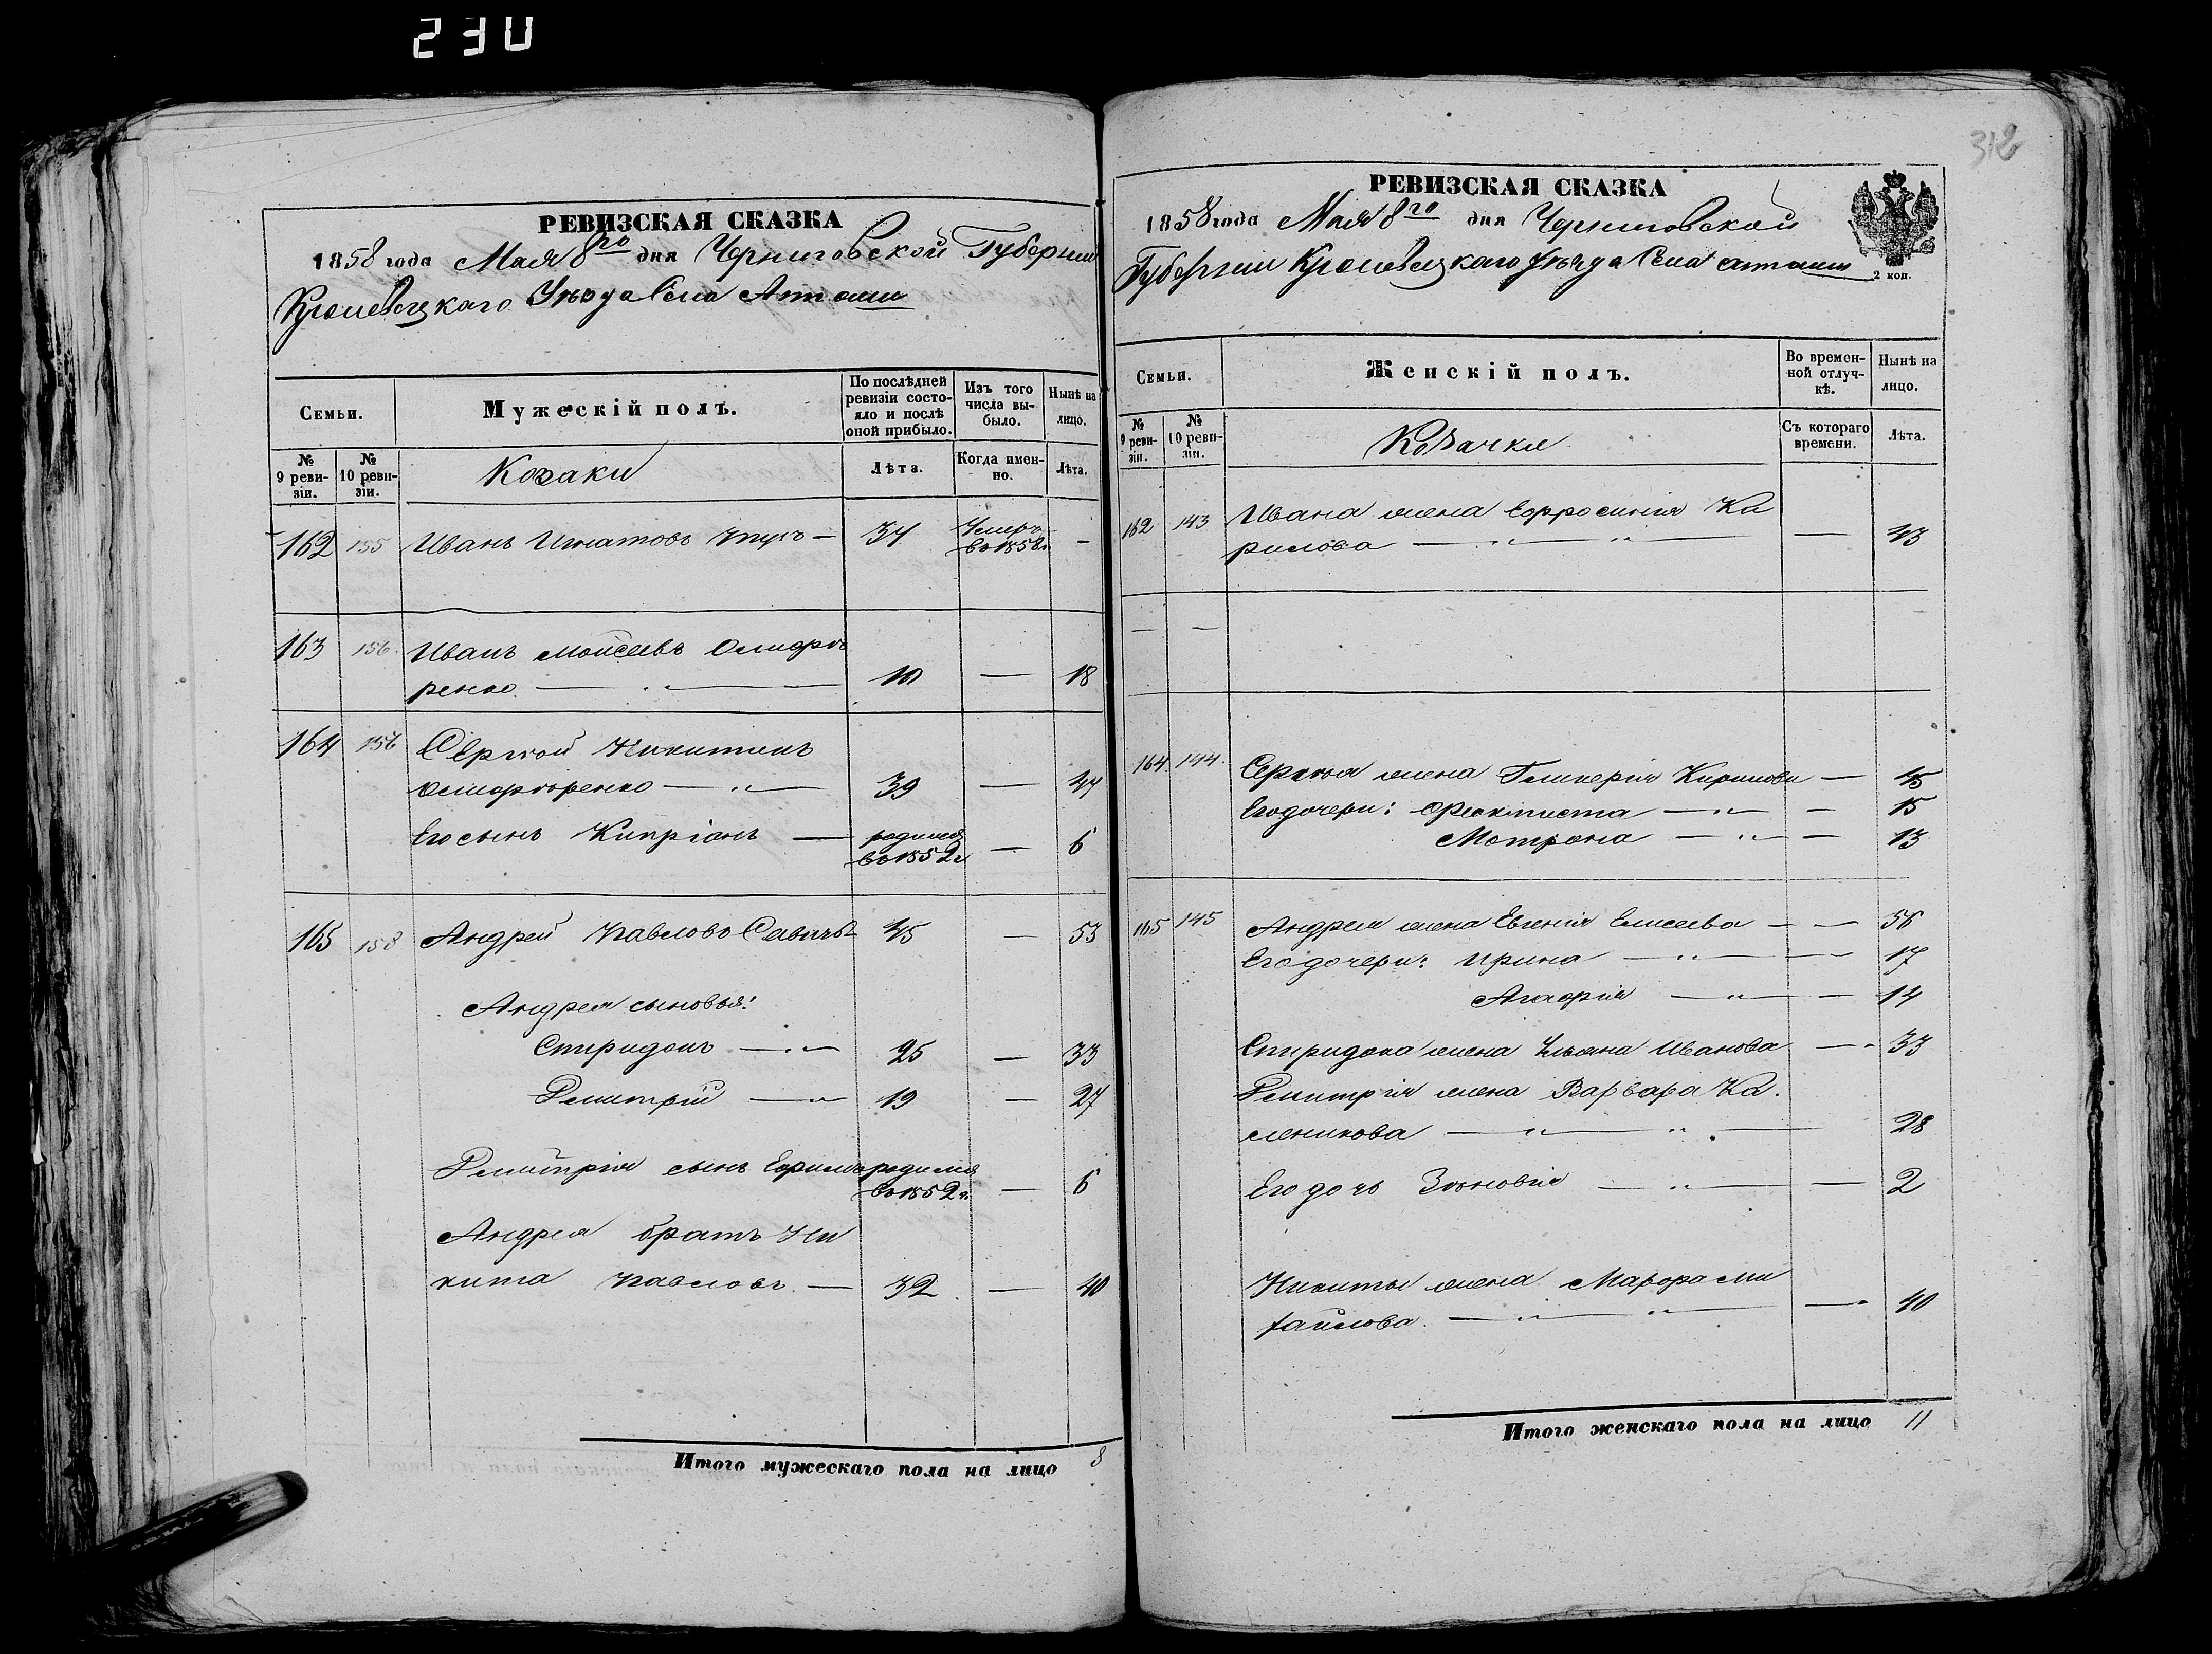 230
РЕВИЗСКАЯ СКАЗКА
1858 года Мая 8го дня Черниговской Губерніи
Кролевецкаго Уѣзда Села Алтын
Семьи.
Мужескій полъ.
По послѣдней ревизіи состояло и послѣ оной прибыло.
Изъ того числа выбыло.
Нынѣ на лицо.
№ 9 ревизіи.
№ 10 ревизіи.
Козаки
Лѣта.
Когда именно.
Лѣта.
162 155 Иванъ Игнатовъ — 34 Умеръ въ 1858г. —
163 156. Иванъ Моисеевъ
ренко — „ — 10 — 18
164 156 Сергѣй Никитинъ
— „ — 39 — 47
Его сынъ Кипріанъ — родился въ 1852г — 6
165 158 Андрей Павловъ Савичъ 45 — 53
Андрея сыновья:
Спиридонъ — „ — 25 — 33
Дмитрій — „ 19 — 27
Дмитрія сынъ Ефимъ родился въ 1852г. — 6
Андрея братъ Ни
кита Павловъ — 32. — 40
Итого мужескаго пола на лицо 8
312
РЕВИЗСКАЯ СКАЗКА
1858 года Мая 8го дня Черниговской
Губерніи Кролевецкаго Уѣзда Села
2 коп.
Семьи.
Женскій полъ.
Во временной отлучкѣ.
Нынѣ на лицо.
№ 9 ревизіи.
№ 10 ревизіи.
Козачки
Съ котораго времени.
Лѣта.
162 143 Ивана жена Ефросинія Ки
рилова — „ — „ — — 43
— —
164 144. Сергѣя жена Гликерія Кирилова — 45
Его дочери: Феоктиста — „ — — 15
Мотрона — „ — — 13
165 145 Андрея жена Евгенія Елисеева — — 56
Его дочери: Ирина — „ — — 17
— „ — — 14
Спиридона жена Ульяна Иванова — 33
Дмитрія жена Варвара Ка.
леникова — „ — „ — 28
Его дочь Зѣновія — „ — — 2
Никиты жена Марфа Ми
хайлова. — „ — „ — — 40
Итого женскаго пола на лицо 11